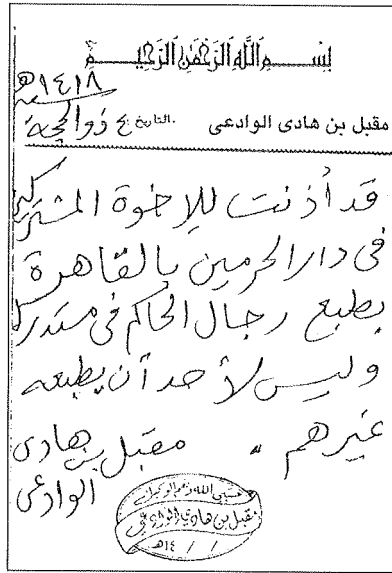 بسم الله الرحمن الرحيم
مقبل بن هادى الوادعى التاريخ ٤ ذو الحجة سنة ١٤١٨هـ
قد أذنت للإخوة المشتركين
فى دار الحرمين بالقاهرة
بطبع رجال الحاكم فى مستدركه
وليس لأحد أن يطبعه
غيرهم . مقبل بن هادى
الوادعى
حسبي الله ونعم الوكيل
مقبل بن هادي الوادعي
/ / ١٤هـ